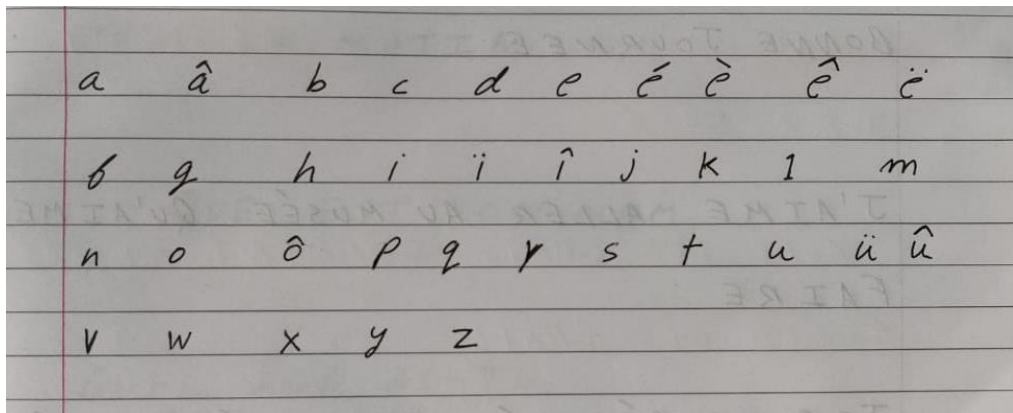 a â b c d e é è ê ë
f g h i ï î j k l m
n o ô p q r s t u ü û
v w x y z